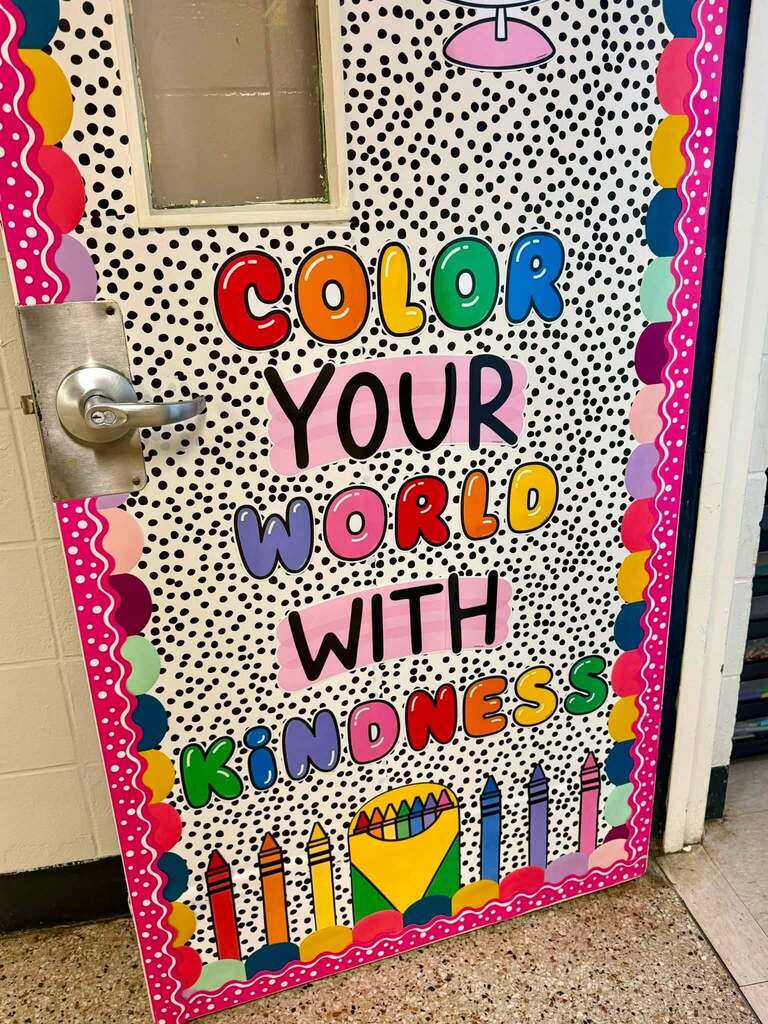 COLOR
YOUR
WORLD
WITH
KiNDNESS